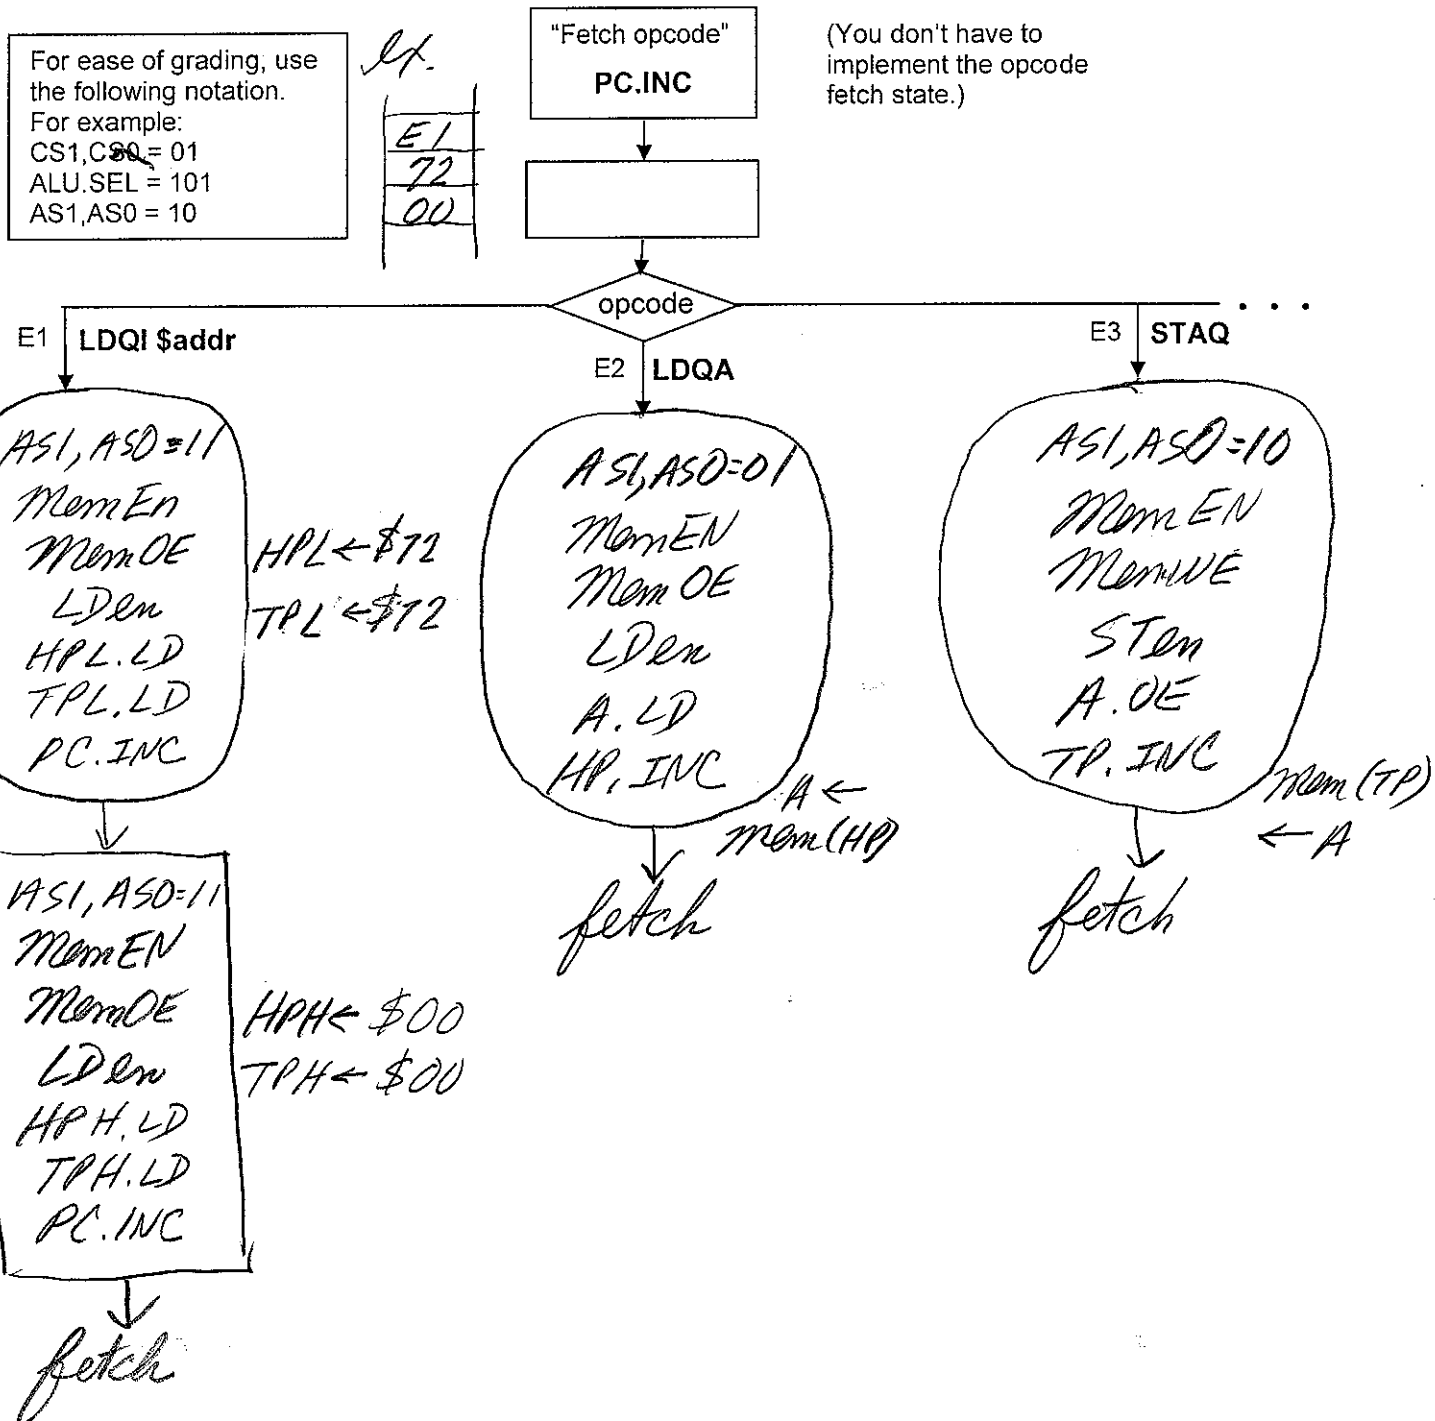 For ease of grading, use
the following notation.
For example:
CS1,CS0 = 01
ALU.SEL = 101
AS1,AS0 = 10
ex.
E1
72
00
"Fetch opcode"
PC.INC
(You don't have to
implement the opcode
fetch state.)
opcode
E1 LDQI $addr
E2 LDQA
E3 STAQ
. . .
AS1, AS0=11
MemEn
MemOE
LDen
HPL.LD
TPL.LD
PC.INC
HPL←$72
TPL←$72
AS1, AS0=11
MemEN
MemOE
LDen
HPH.LD
TPH.LD
PC.INC
HPH←$00
TPH←$00
fetch
AS1,AS0=01
MemEN
MemOE
LDen
A.LD
HP.INC
A ←
mem(HP)
fetch
AS1,AS0=10
MemEN
MemWE
STen
A.OE
TP.INC
Mem(TP)
← A
fetch